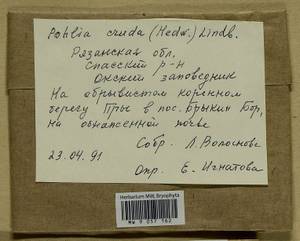 Pohlia cruda (Hedw.) Lindb.
Рязанская обл.
Спасский р-н
Окский заповедник
На обрывистом коренном
берегу Пры в пос. Брыкин Бор,
на обнаженной почве
Собр. Л. Волоснова
23.04.91
Опр. Е. Игнатова
Herbarium MW, Bryophyta
MW 9 037 162